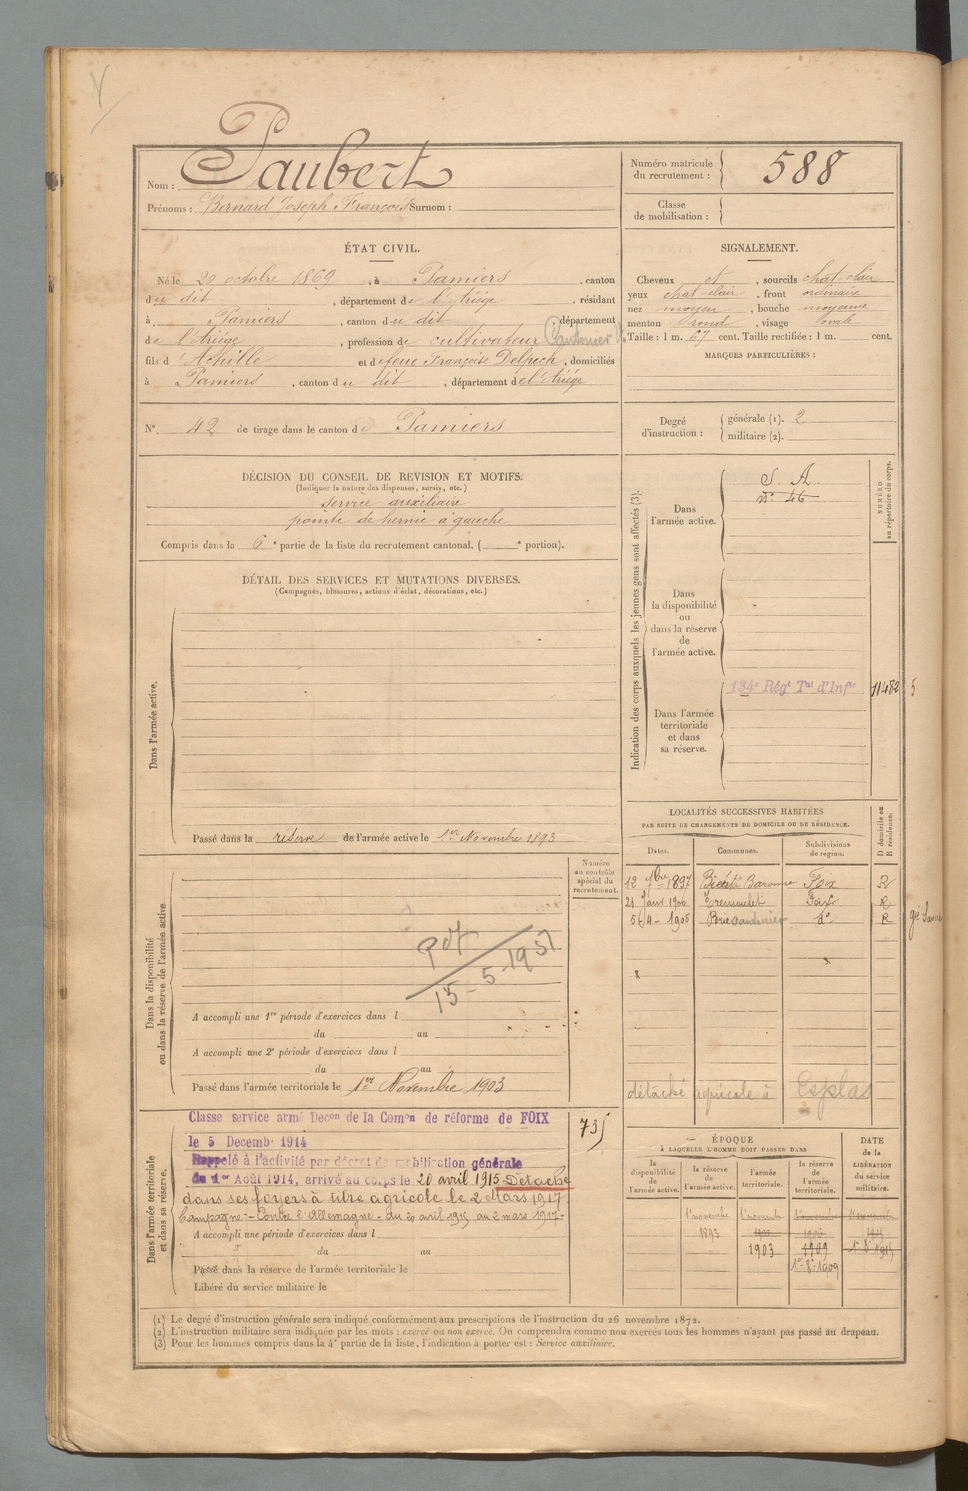 Nom : Paubert
Prénoms : Bernard Joseph François Surnom :
Numéro matricule du recrutement : 588
Classe de mobilisation :
ÉTAT CIVIL.
Né le 20 octobre 1869, à Pamiers, canton
du dit, département de l'Ariège, résidant
à Pamiers, canton du dit, département
de l'Ariège, profession de cultivateur Cantonnier
fils d'Achille et de feue Françoise Delpech, domiciliés
à Pamiers, canton du dit, département de l'Ariège
N° 42 de tirage dans le canton de Pamiers
SIGNALEMENT.
Cheveux et, sourcils chat clair
yeux chat clair, front ordinaire
nez moyen, bouche moyenne
menton rond, visage ovale
Taille : 1 m. 67 cent. Taille rectifiée : 1 m. cent.
MARQUES PARTICULIÈRES :
Degré d'instruction : générale (1). 2
militaire (2).
DÉCISION DU CONSEIL DE REVISION ET MOTIFS.
(Indiquer la nature des dispenses, sursis, etc.)
service auxiliaire
pointe de hernie à gauche
Compris dans la 6e partie de la liste du recrutement cantonal. ( e portion).
DÉTAIL DES SERVICES ET MUTATIONS DIVERSES.
(Campagnes, blessures, actions d'éclat, décorations, etc.)
Dans l'armée active.
Passé dans la réserve de l'armée active le 1er Novembre 1893
Indication des corps auxquels les jeunes gens sont affectés (3).
NUMÉRO au répertoire du corps.
Dans l'armée active.
S. A.
n° 46
Dans la disponibilité ou dans la réserve de l'armée active.
Dans l'armée territoriale et dans sa réserve.
134e Régt Tal d'Infie
11482
5
LOCALITÉS SUCCESSIVES HABITÉES
PAR SUITE DE CHANGEMENTS DE DOMICILE OU DE RÉSIDENCE.
Dates. Communes. Subdivisions de région. D domicile ou R résidence.
12 7bre 1897 Foix R
21 Janv 1900 Tremoulet Foix R
5-4-1905 do R
détaché agricole à Esplas
Dans la disponibilité ou dans la réserve de l'armée active
Numéro au contrôle spécial du recrutement.
15-5-1951
A accompli une 1re période d'exercices dans l
du au
A accompli une 2e période d'exercices dans l
du au
Passé dans l'armée territoriale le 1er Novembre 1903
Dans l'armée territoriale et dans sa réserve.
735
Classe service armé Decon de la Comon de réforme de FOIX
le 5 Decemb. 1914
Rappelé à l'activité par décret de mobilisation générale
du 1er Août 1914, arrivé au corps le 20 avril 1915 Détaché
dans ses foyers à titre agricole le 2 Mars 1917
Campagne - Contre l'Allemagne - du 20 avril 1915 au 2 mars 1917-
A accompli une période d'exercices dans l
du au
Passé dans la réserve de l'armée territoriale le
Libéré du service militaire le
ÉPOQUE
À LAQUELLE L'HOMME DOIT PASSER DANS
DATE de la LIBÉRATION du service militaire.
la disponibilité de l'armée active. la réserve de l'armée active. l'armée territoriale. la réserve de l'armée territoriale.
1 novembre 1 novembre 1 novembre 1 novembre
1893
1903 1909 1-8-1915
1er-8-1909
(1) Le degré d'instruction générale sera indiqué conformément aux prescriptions de l'instruction du 26 novembre 1872.
(2) L'instruction militaire sera indiquée par les mots : exercé ou non exercé. On comprendra comme non exercés tous les hommes n'ayant pas passé au drapeau.
(3) Pour les hommes compris dans la 4e partie de la liste, l'indication à porter est : Service auxiliaire.